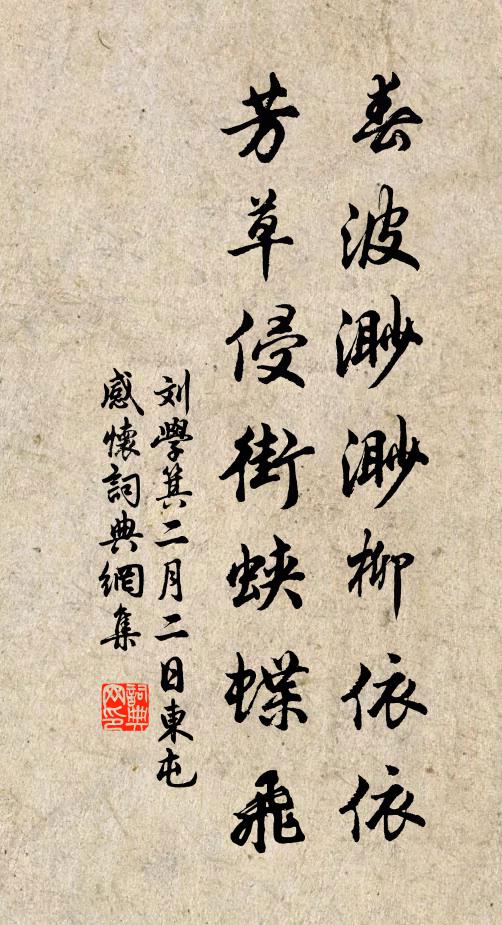 春波渺渺柳依依
芳草侵街蛱蝶飛
刘學箕二月二日東屯
感懷詞典網集
詞典网印